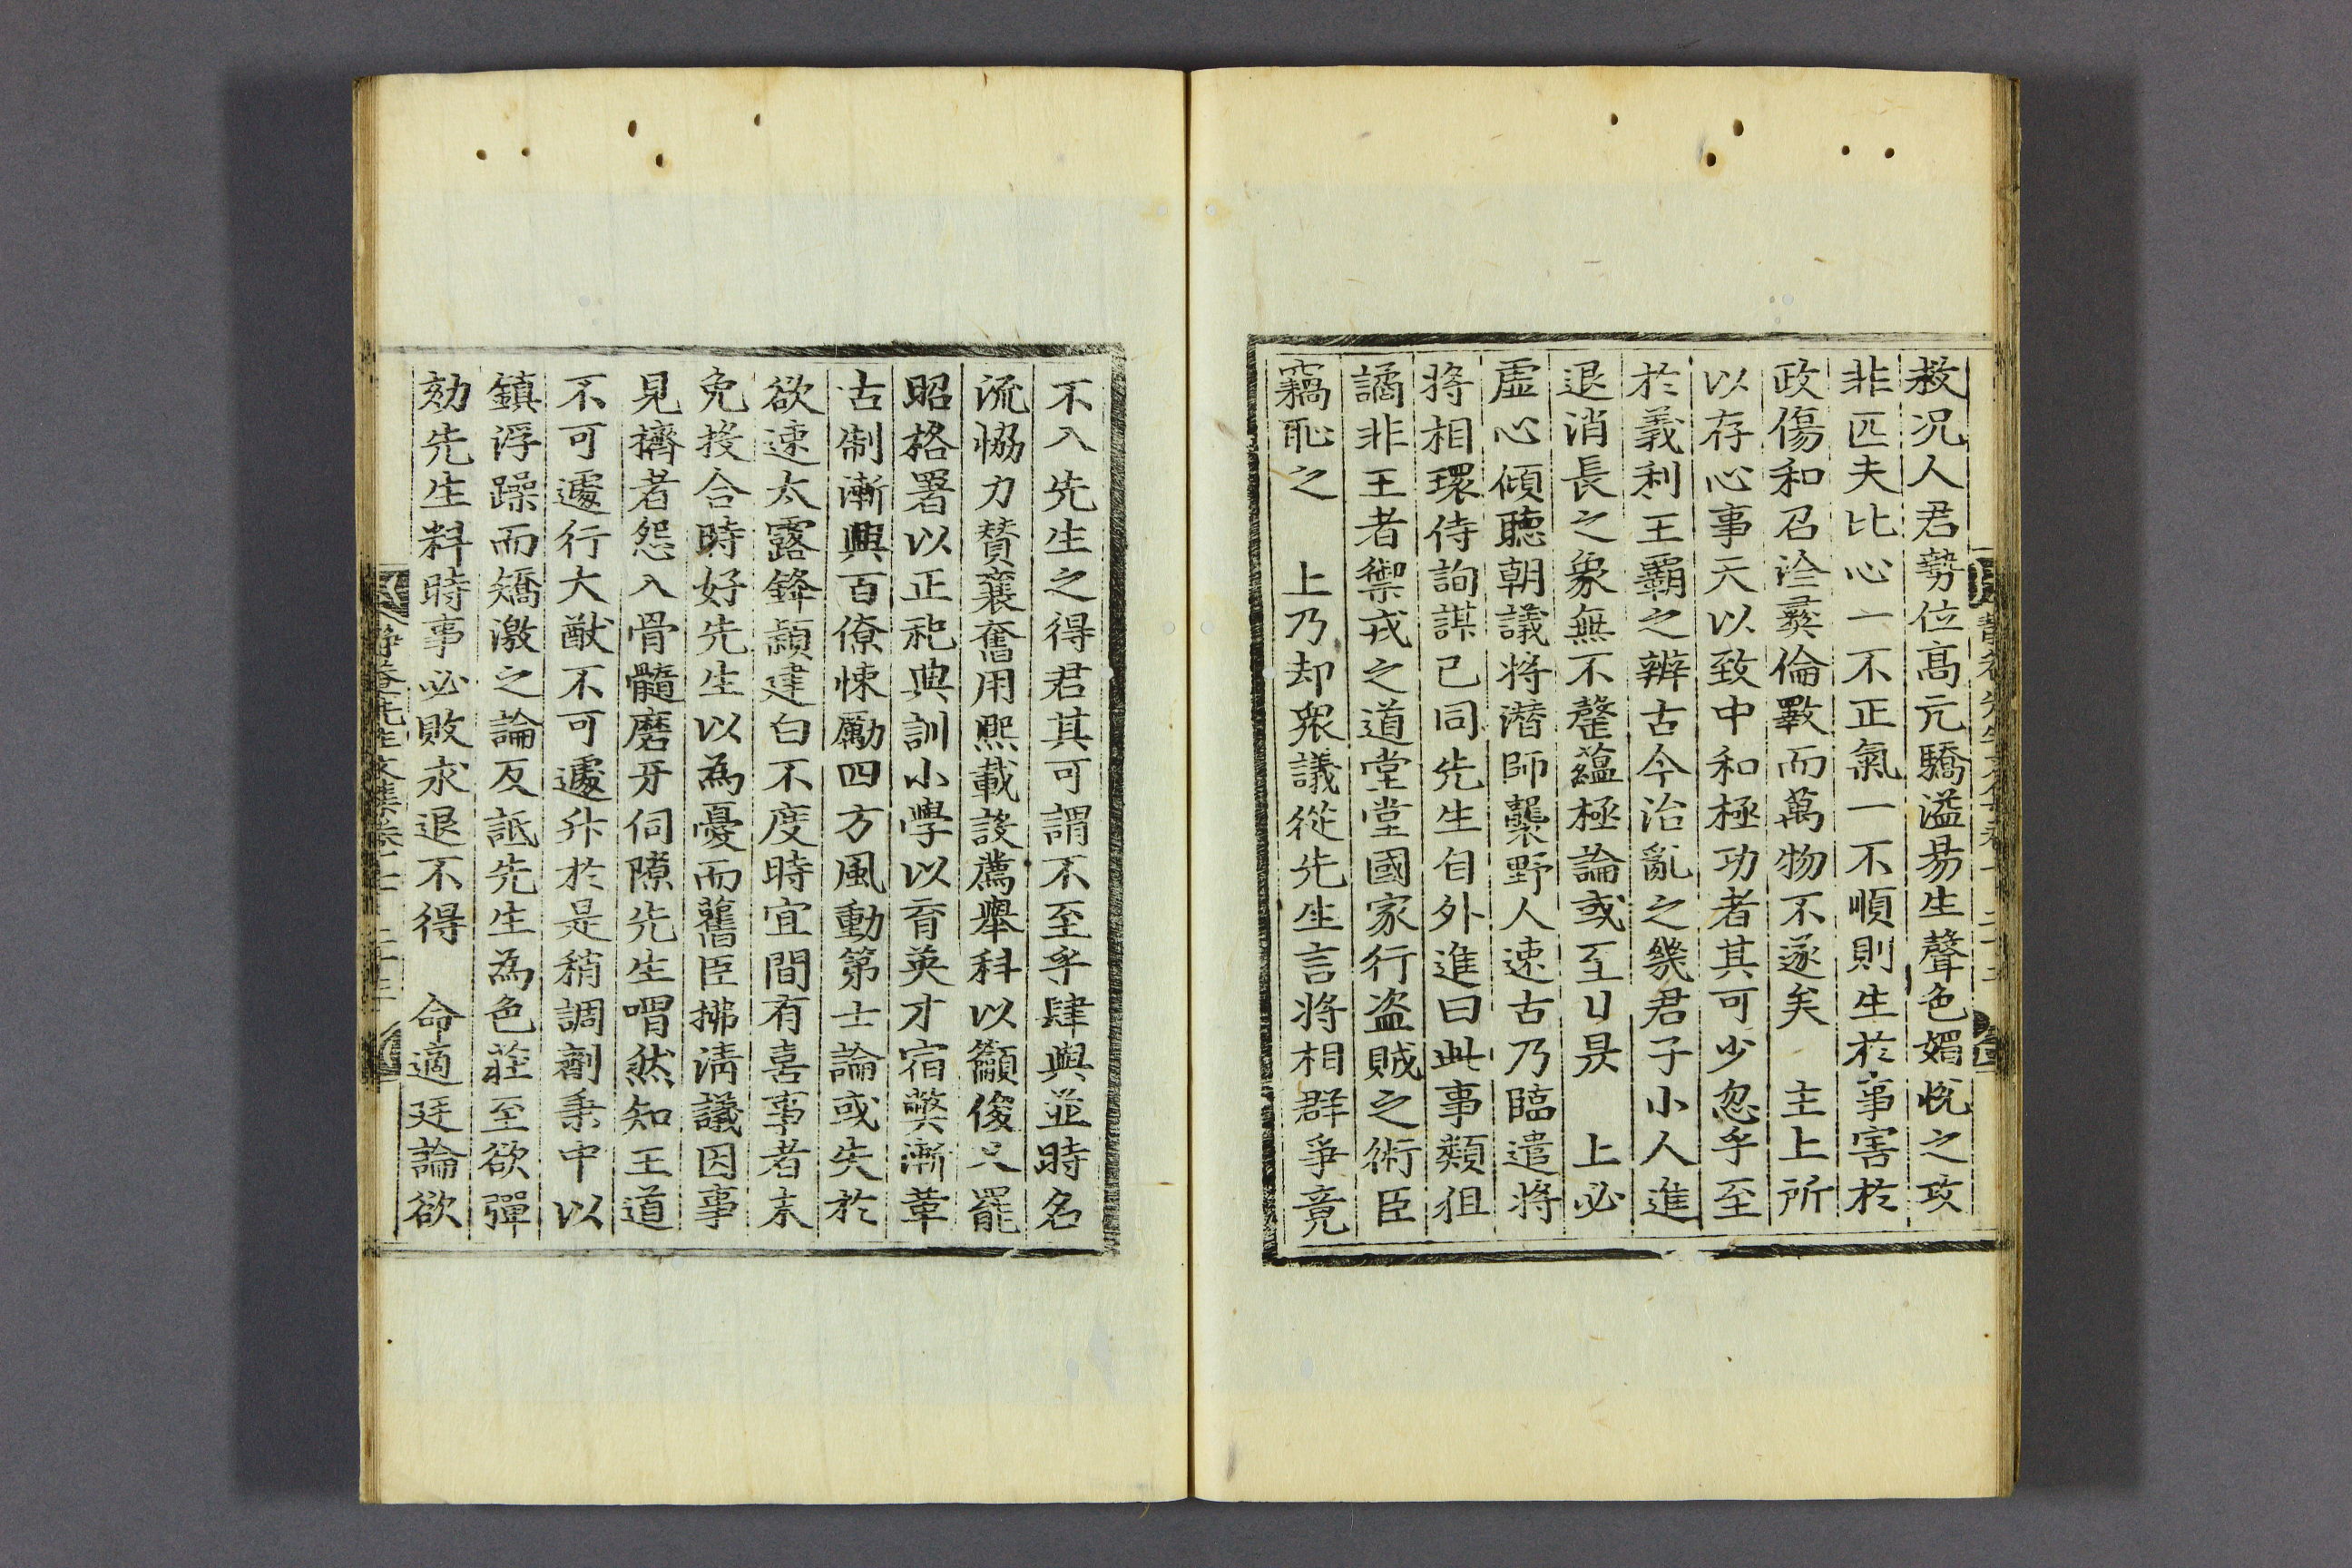 救况人君勢位高元驕溢易生聲色媚悅之攻
非匹夫比心一不正氣一不順則生於事害於
政傷和召沴彛倫斁而萬物不遂矣 主上所
以存心事天以致中和極功者其可少忽乎至
於義利王覇之辨古今治亂之幾君子小人進
退消長之象無不罄蘊極論或至日昃 上必
虛心傾聽朝議將潜師襲野人速古乃臨遣將
將相環侍詢謀已同先生自外進曰此事類狙
譎非王者禦戎之道堂堂國家行盗賊之術臣
竊恥之 上乃却衆議從先生言將相群爭竟
不入先生之得君其可謂不至乎肆與並時名
流恊力賛襄奮用熙載設薦舉科以籲俊乂罷
昭格署以正祀典訓小學以育英才宿弊漸革
古制漸興百僚悚勵四方風動第士論或失於
欲速太露鋒頴建白不度時宜間有喜事者未
免投合時好先生以為憂而舊臣拂淸議因事
見擠者怨入骨髓磨牙伺隙先生喟然知王道
不可遽行大猷不可遽升於是稍調劑秉中以
鎮浮躁而矯激之論反詆先生為色莊至欲彈
劾先生料時事必敗求退不得 命適廷論欲
静菴先生文集卷 二十三